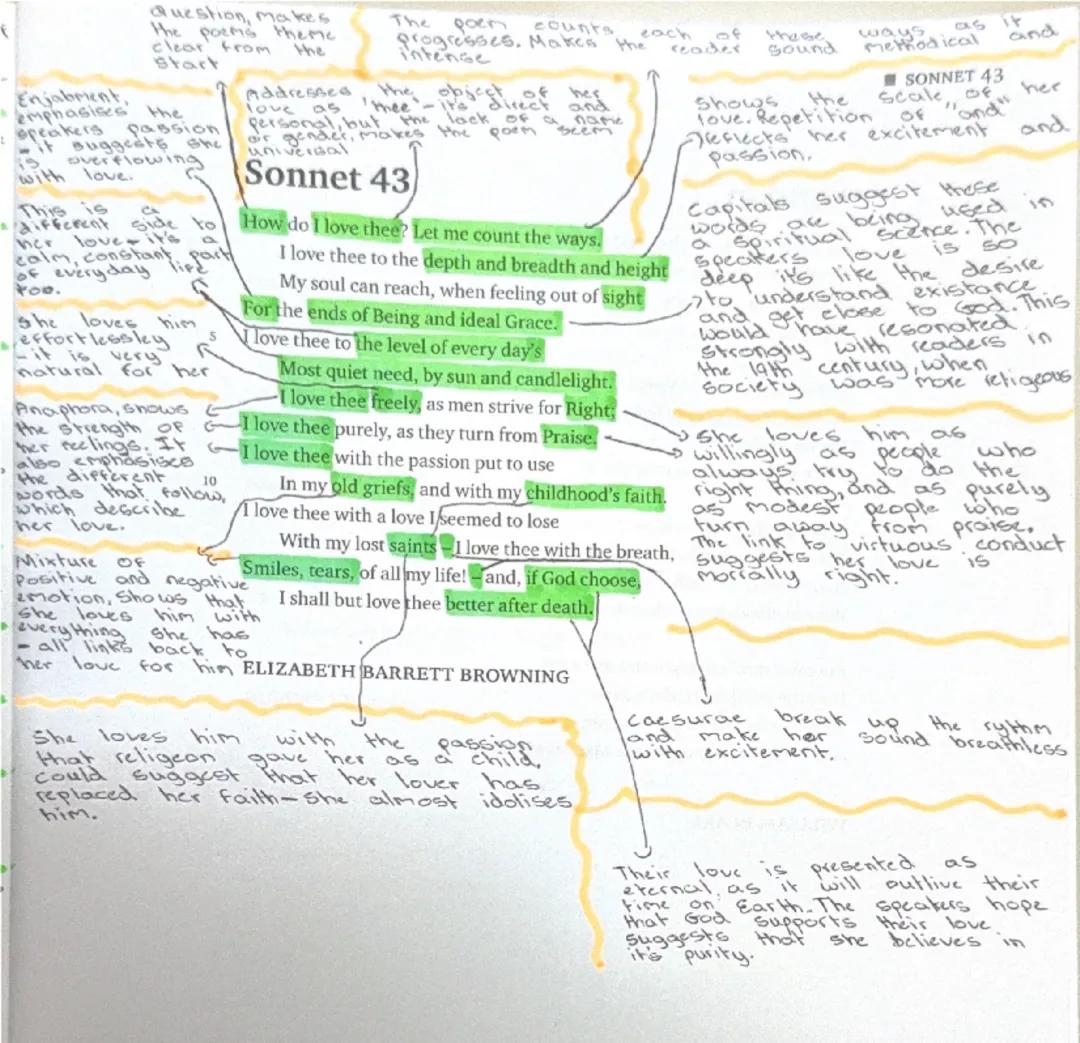 Question, makes
the poems theme
clear from the
start
The poem counts each of these ways as it
progresses. Makes the reader sound methodical and
intense
■ SONNET 43
Enjabment,
emphasises the
speakers passion
- it suggests she
is overflowing
with love.
Addresses the object of her
love as 'thee' - it's direct and
personal, but the lack of a name
or gender, makes the poem seem
universal
Shows the scale of her
love. Repetition of "and"
reflects her excitement and
passion.
Sonnet 43
How do I love thee? Let me count the ways.
I love thee to the depth and breadth and height
My soul can reach, when feeling out of sight
For the ends of Being and ideal Grace.
5 I love thee to the level of every day's
Most quiet need, by sun and candlelight.
I love thee freely, as men strive for Right;
I love thee purely, as they turn from Praise.
I love thee with the passion put to use
10 In my old griefs, and with my childhood's faith.
I love thee with a love I seemed to lose
With my lost saints – I love thee with the breath,
Smiles, tears, of all my life! – and, if God choose,
I shall but love thee better after death.
ELIZABETH BARRETT BROWNING
This is a
different side to
her love - it's a
calm, constant part
of everyday life
too.
She loves him
effortlessley
- it is very
natural for her
Anaphora, shows
the strength of
her feelings. It
also emphasises
the different
words that follow,
which describe
her love.
Mixture of
positive and negative
emotion, shows that
she loves him with
everything she has
- all links back to
her love for him
Capitals suggest these
words are being used in
a spiritual scence. The
speakers love is so
deep it's like the desire
to understand existance
and get close to God. This
would have resonated
strongly with readers in
the 19th century, when
society was more religeous
She loves him as
willingly as people who
always try to do the
right thing, and as purely
as modest people who
turn away from praise.
The link to virtuous conduct
suggests her love is
morally right.
She loves him with the passion
that religeon gave her as a child,
could suggest that her lover has
replaced her faith - she almost idolises
him.
Caesurae break up the rythm
and make her sound breathless
with excitement.
Their love is presented as
eternal, as it will outlive their
time on Earth. The speakers hope
that God supports their love
suggests that she believes in
it's purity.